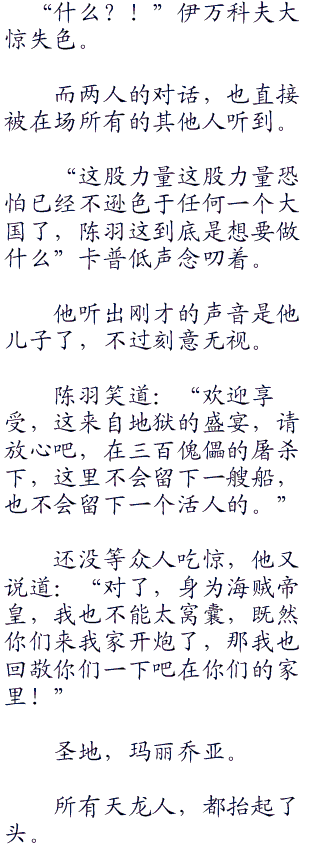 “什么？！”伊万科夫大
惊失色。
而两人的对话，也直接
被在场所有的其他人听到。
“这股力量这股力量恐
怕已经不逊色于任何一个大
国了，陈羽这到底是想要做
什么”卡普低声念叨着。
他听出刚才的声音是他
儿子了，不过刻意无视。
陈羽笑道：“欢迎享
受，这来自地狱的盛宴，请
放心吧，在三百傀儡的屠杀
下，这里不会留下一艘船，
也不会留下一个活人的。”
还没等众人吃惊，他又
说道：“对了，身为海贼帝
皇，我也不能太窝囊，既然
你们来我家开炮了，那我也
回敬你们一下吧在你们的家
里！”
圣地，玛丽乔亚。
所有天龙人，都抬起了
头。